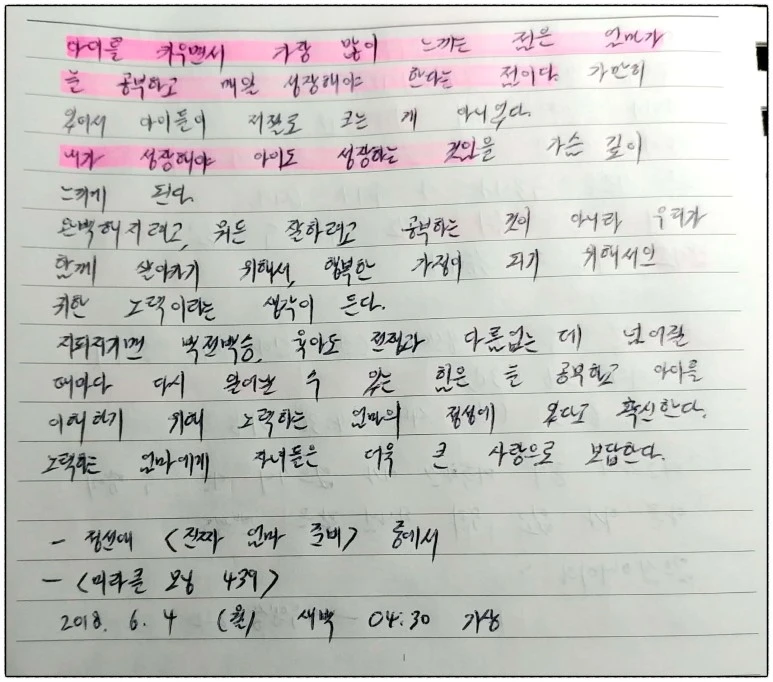 아이를 키우면서 가장 많이 느끼는 점은 엄마가
늘 공부하고 매일 성장해야 한다는 점이다. 가만히
있어서 아이들이 저절로 크는 게 아니었다.
내가 성장해야 아이도 성장하는 것임을 가슴 깊이
느끼게 된다.
완벽해지려고, 뭐든 잘하려고 공부하는 것이 아니라 우리가
함께 살아가기 위해서, 행복한 가정이 되기 위해서의
귀한 노력이라는 생각이 든다.
지피지기면 백전백승, 육아도 전쟁과 다름없는 데 넘어질
때마다 다시 일어날 수 있는 힘은 늘 공부하고 아이를
이해하기 위해 노력하는 엄마의 정성에 있다고 확신한다.
노력하는 엄마에게 자녀들은 더욱 큰 사랑으로 보답한다.
- 정선애 <진짜 엄마 준비> 중에서
- <미라클 모닝 439>
2018. 6. 4 (월) 새벽 04:30 기상